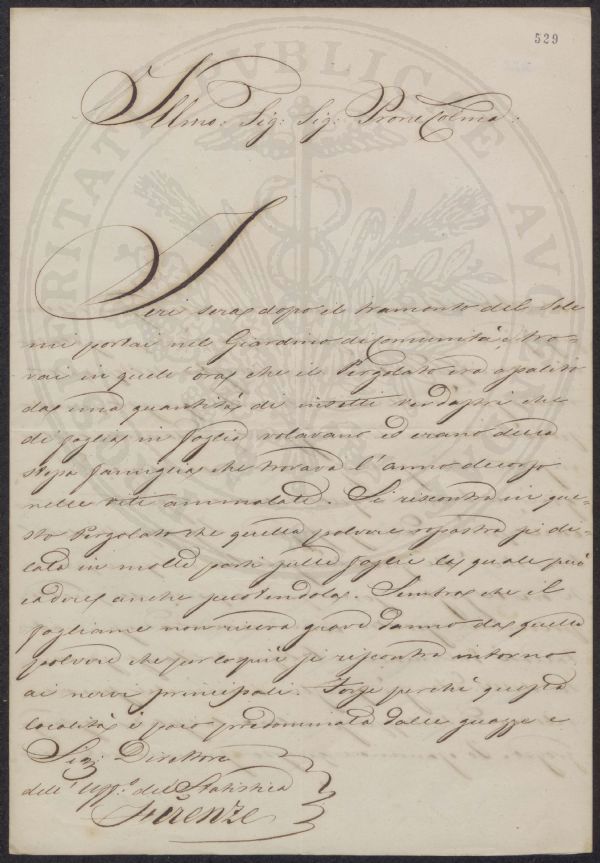 529
Illmo: Sig: Sig: Prone Colmo:
Ieri sera dopo il tramonto del Sole
mi portai nel Giardino di comunità, e tro-
vai in quell'ora che il Pergolato era assalito
da una quantità di insetti verdastri che
di foglia in foglia volavano ed erano della
stessa famiglia che trovava l'anno decorso
nelle viti ammalate. Si riscontra in que-
sto Pergolato che quella polvere rossastra si di-
lata in molte parti sulle foglie la quale però
cade anche scuotendola. Sembra che il
fogliame non riceva grave danno da quella
polvere che per lo più si riscontra intorno
ai nervi principali. Forse perchè questa
località è poco predominata dalle guazze e
Sig: Direttore
dell' Uff.o del Statistica
Firenze
PROSPERITATI PUBLICAE AUGENDAE